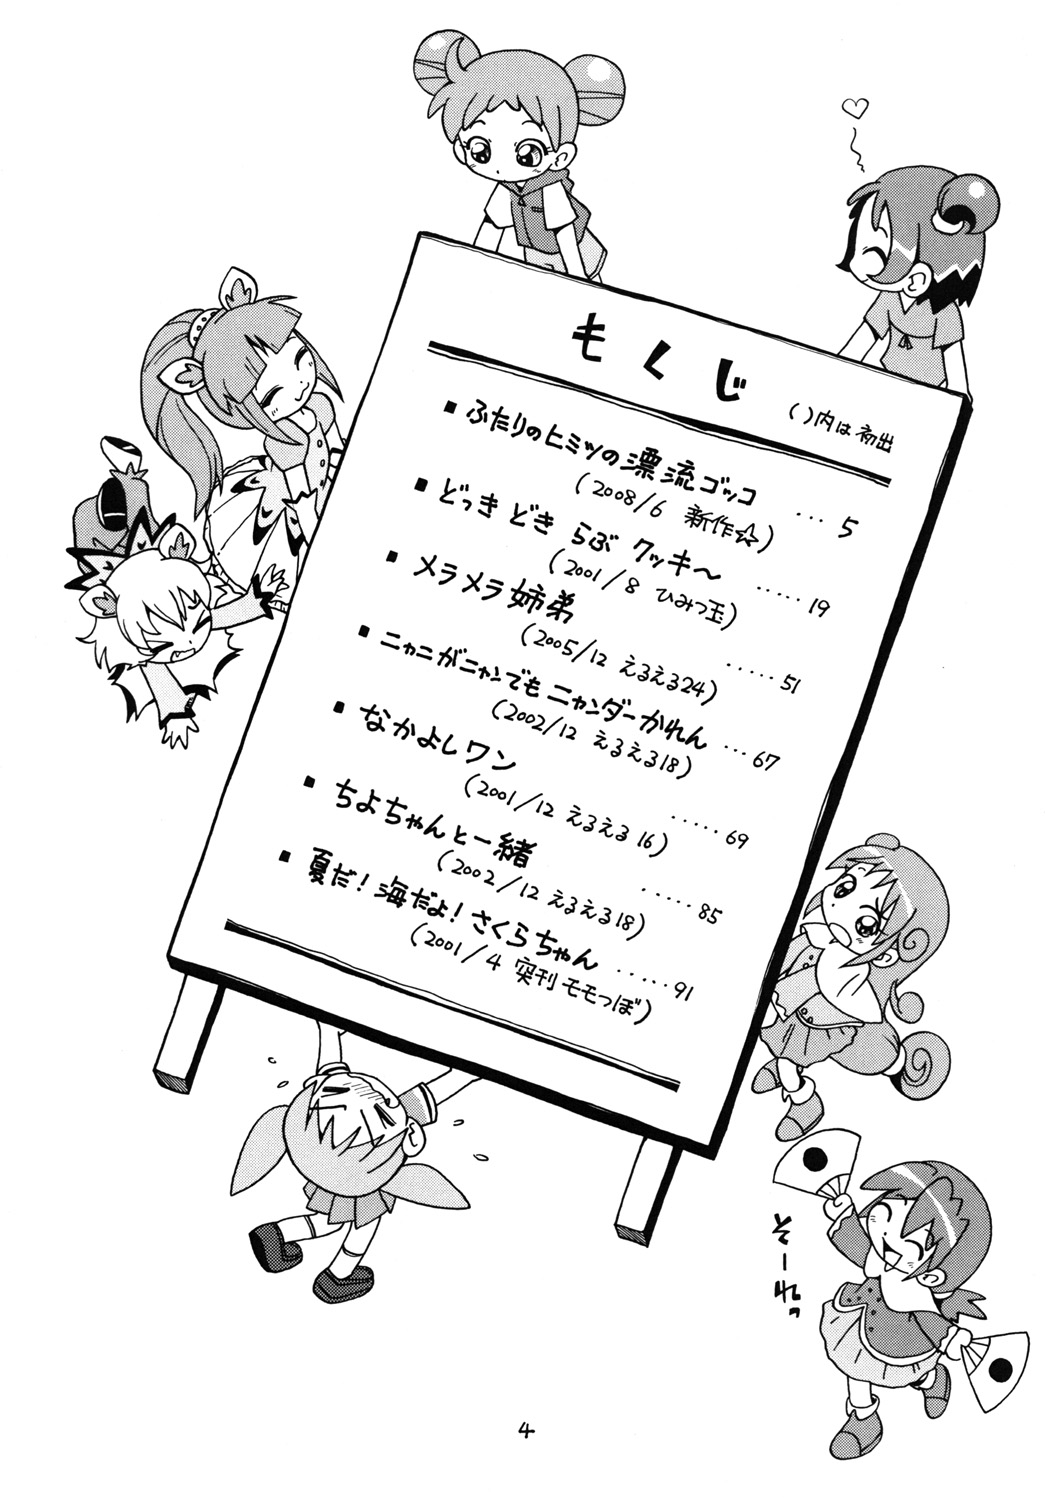 もくじ
( )内は初出
■ ふたりのヒミツの漂流ゴッコ ··· 5
(2008/6 新作☆)
■ どっきどき らぶ クッキ〜 ····· 19
(2001/8 ひみつ玉)
■ メラメラ姉弟 ····· 51
(2005/12 えるえる24)
■ ニャニがニャンでも ニャンダーかれん ··· 67
(2002/12 えるえる18)
■ なかよしワン ····· 69
(2001/12 えるえる16)
■ ちよちゃんと一緒 ····· 85
(2002/12 えるえる18)
■ 夏だ!海だよ!さくらちゃん ····· 91
(2001/4 突刊 モモつぼ)
そーれっ
4